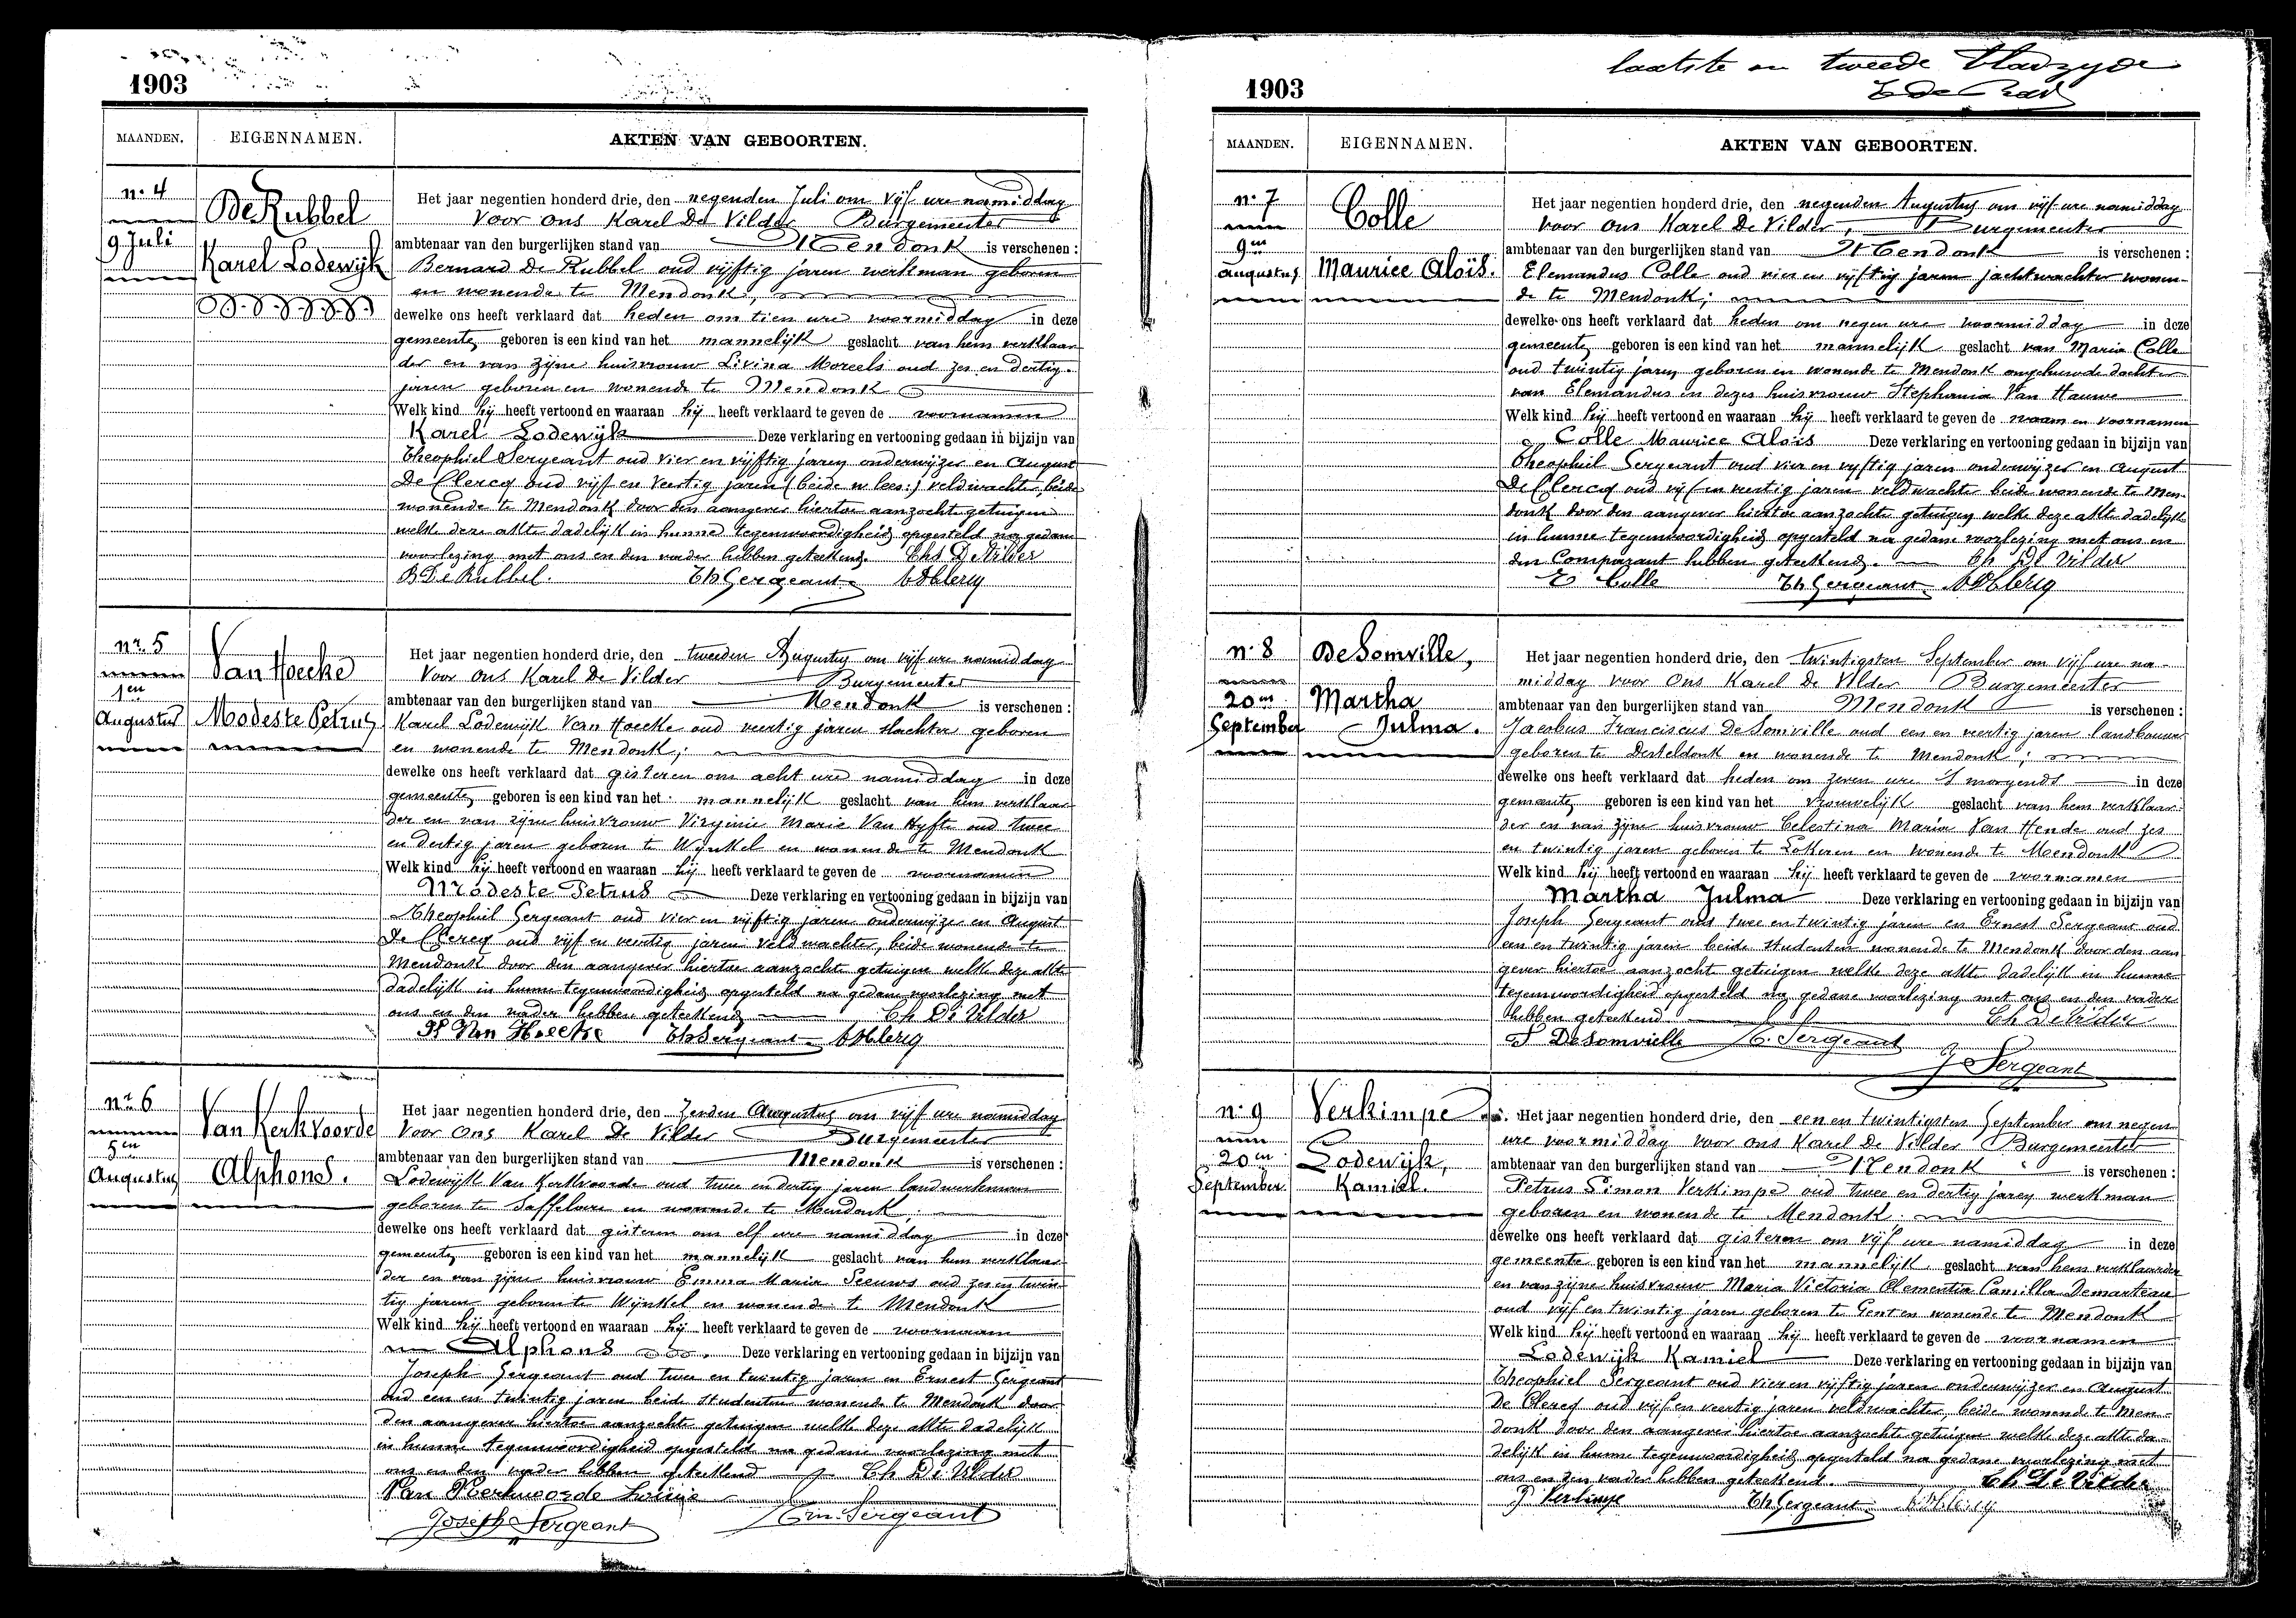 1903
MAANDEN. EIGENNAMEN. AKTEN VAN GEBOORTEN.
nr. 4
9 Juli
De Rubbel
Karel Lodewijk
Het jaar negentien honderd drie, den negenden Juli om vijf ure namiddag
voor ons Karel De Vilder Burgemeester
ambtenaar van den burgerlijken stand van Mendonk is verschenen :
Bernard De Rubbel oud vijftig jaren werkman geboren
en wonende te Mendonk,
dewelke ons heeft verklaard dat heden om tien ure voormiddag in deze
gemeente, geboren is een kind van het mannelijk geslacht van hem verklaar
der en van zijne huisvrouw Livina Moreels oud zes en dertig
jaren geboren en wonende te Mendonk
Welk kind hij heeft vertoond en waaraan hij heeft verklaard te geven de voornamen
Karel Lodewijk Deze verklaring en vertooning gedaan in bijzijn van
Theophiel Sergeant oud vier en vijftig jaren onderwijzer en August
De Clercq oud vijf en veertig jaren (beide n. lees:) veldwachter, beide
wonende te Mendonk door den aangever hiertoe aanzochte getuigen
welke deze akte dadelijk in hunne tegenwoordigheid opgesteld na gedane
voorlezing met ons en den vader hebben geteekend. Chs De Vilder
B De Rubbel. Th Sergeant ADClercq
nr. 5
1en
Augustus
Van Hoecke
Modeste Petrus
Het jaar negentien honderd drie, den tweeden Augustus om vijf ure namiddag
Voor ons Karel De Vilder Burgemeester
ambtenaar van den burgerlijken stand van Mendonk is verschenen :
Karel Lodewijk Van Hoecke oud veertig jaren slachter geboren
en wonende te Mendonk;
dewelke ons heeft verklaard dat gisteren om acht ure namiddag in deze
gemeente, geboren is een kind van het mannelijk geslacht van hem verklaar
der en van zijne huisvrouw Virginie Marie Van Hyfte oud twee
en dertig jaren geboren te Wynkel en wonende te Mendonk
Welk kind hij heeft vertoond en waaraan hij heeft verklaard te geven de voornamen
Modeste Petrus Deze verklaring en vertooning gedaan in bijzijn van
Theophiel Sergeant oud vier en vijftig jaren onderwijzer en August
De Clercq oud vijf en veertig jaren veldwachter, beide wonende te
Mendonk door den aangever hiertoe aanzocht getuigen welke deze akte
dadelijk in hunne tegenwoordigheid opgesteld na gedane voorlezing met
ons en den vader hebben geteekend Ch De Vilder
Van Hoecke Th Sergeant ADClercq
nr. 6
5en
Augustus
Van Kerkvoorde
Alphons.
Het jaar negentien honderd drie, den Zesden Augustus om vijf ure namiddag
Voor ons Karel De Vilder Burgemeester
ambtenaar van den burgerlijken stand van Mendonk is verschenen :
Lodewijk Van Kerkvoorde oud twee en dertig jaren landwerkman
geboren te Saffelaere en wonende te Mendonk,
dewelke ons heeft verklaard dat gisteren om elf ure namiddag in deze
gemeente, geboren is een kind van het mannelijk geslacht van hem verklaar
der en van zijne huisvrouw Emma Maria Seeuws oud zes en twin
tig jaren geboren te Wijnkel en wonende te Mendonk
Welk kind hij heeft vertoond en waaraan hij heeft verklaard te geven de voornaam
Alphons Deze verklaring en vertooning gedaan in bijzijn van
Joseph Sergeant oud twee en twintig jaren en Ernest Sergeant
oud een en twintig jaren beide studenten wonende te Mendonk door
den aangever hiertoe aanzochte getuigen welke deze akte dadelijk
in hunne tegenwoordigheid opgesteld na gedane voorlezing met
ons en den vader hebben geteekend Ch De Vilder
Van Kerkvoorde Louis
Joseph Sergeant Ern. Sergeant
laatste en tweede bladzyde
1903
MAANDEN. EIGENNAMEN. AKTEN VAN GEBOORTEN.
nr. 7
9en
augustus
Colle
Maurice Aloïs.
Het jaar negentien honderd drie, den negenden Augustus om vijf ure namiddag
voor ons Karel De Vilder, Burgemeester
ambtenaar van den burgerlijken stand van Mendonk is verschenen :
Elemandus Colle oud vier en vijftig jaren jachtwachter wonen-
de te Mendonk;
dewelke ons heeft verklaard dat heden om negen ure voormiddag in deze
gemeente, geboren is een kind van het mannelijk geslacht van Maria Colle
oud twintig jaren geboren en wonende te Mendonk ongehuwde dochter
van Elemandus en dezes huisvrouw Stephania Van Hauwe
Welk kind hij heeft vertoond en waaraan hij heeft verklaard te geven de naam en voornamen
Colle Maurice Aloïs Deze verklaring en vertooning gedaan in bijzijn van
Theophiel Sergeant oud vier en vyftig jaren onderwijzer en August
De Clercq oud vijf en veertig jaren veldwachter beide wonende te Men-
donk door den aangever hiertoe aanzochte getuigen welke deze akte dadelijk
in hunne tegenwoordigheid opgesteld na gedane voorlezing met ons en
den Comparant hebben geteekend. Ch De Vilder
E Colle Th Sergeant ADClercq
nr. 8
20en
September
De Somville,
Martha
Julma.
Het jaar negentien honderd drie, den twintigsten September om vijf ure na-
middag voor ons Karel De Vilder Burgemeester
ambtenaar van den burgerlijken stand van Mendonk is verschenen :
Jacobus Franciscus De Somville oud een en veertig jaren landbouwer
geboren te Desteldonk en wonende te Mendonk;
dewelke ons heeft verklaard dat heden om zeven ure 's morgends in deze
gemeente, geboren is een kind van het vrouwelijk geslacht van hem verklaar-
der en van zijne huisvrouw Celestina Maria Van Hende oud zes
en twintig jaren geboren te Lokeren en wonende te Mendonk
Welk kind hij heeft vertoond en waaraan hij heeft verklaard te geven de voornamen
Martha Julma Deze verklaring en vertooning gedaan in bijzijn van
Joseph Sergeant oud twee en twintig jaren en Ernest Sergeant oud
een en twintig jaren beide studenten wonende te Mendonk door den aan
gever hiertoe aanzocht getuigen welke deze akte dadelijk in hunne
tegenwoordigheid opgesteld na gedane voorlezing met ons en den vader
hebben geteekend. Ch De Vilder
DeSomvielle E. Sergeant
J Sergeant
nr. 9
20en
September
Verkimpe
Lodewijk,
Kamiel.
Het jaar negentien honderd drie, den een en twintigsten September om negen
ure voormiddag voor ons Karel De Vilder Burgemeester
ambtenaar van den burgerlijken stand van Mendonk is verschenen :
Petrus Simon Verkimpe oud twee en dertig jaren werkman
geboren en wonende te Mendonk.
dewelke ons heeft verklaard dat gisteren om vijf ure namiddag in deze
gemeente geboren is een kind van het mannelijk geslacht van hem verklaarder
en van zijne huisvrouw Maria Victoria Clementia Camilla Demarteau
oud vijf en twintig jaren geboren te Gent en wonende te Mendonk
Welk kind hij heeft vertoond en waaraan hij heeft verklaard te geven de voornamen
Lodewijk Kamiel Deze verklaring en vertooning gedaan in bijzijn van
Theophiel Sergeant oud vier en vijftig jaren onderwijzer en August
De Clercq oud vijf en veertig jaren veldwachter, beide wonende te Men-
donk door den aangever hiertoe aanzochte getuigen welke deze akte da-
delijk in hunne tegenwoordigheid opgesteld na gedane voorlezing met
ons en den vader hebben geteekend. Ch De Vilder
P Verkimpe Th Sergeant ADClercq